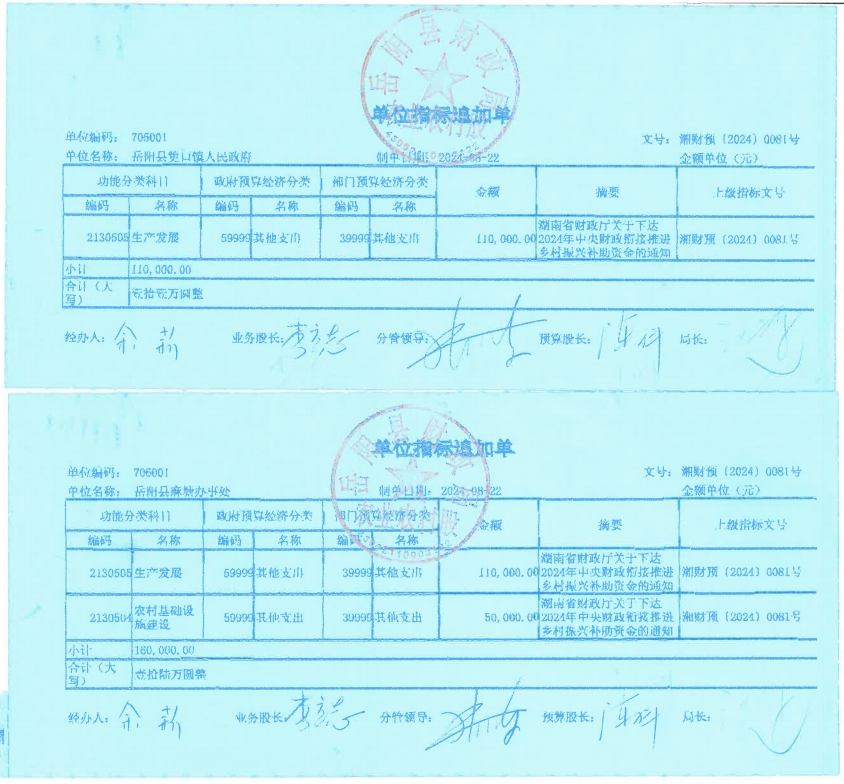 岳阳县财政局
农业农村股
单位指标追加单
单位编码: 705001 文号: 湘财预〔2024〕0081号
单位名称: 岳阳县筻口镇人民政府 制单日期: 2024-08-22 金额单位(元)
功能分类科目 政府预算经济分类 部门预算经济分类 金额 摘要 上级指标文号
编码 名称 编码 名称 编码 名称
2130505 生产发展 59999 其他支出 39999 其他支出 110,000.00 湖南省财政厅关于下达2024年中央财政衔接推进乡村振兴补助资金的通知 湘财预〔2024〕0081号
小计 110,000.00
合计(大写) 壹拾壹万圆整
经办人: 余薪 业务股长: 李立志 分管领导: 预算股长: 局长:
岳阳县财政局
农业农村股
单位指标追加单
单位编码: 706001 文号: 湘财预〔2024〕0081号
单位名称: 岳阳县麻塘办事处 制单日期: 2024-08-22 金额单位(元)
功能分类科目 政府预算经济分类 部门预算经济分类 金额 摘要 上级指标文号
编码 名称 编码 名称 编码 名称
2130505 生产发展 59999 其他支出 39999 其他支出 110,000.00 湖南省财政厅关于下达2024年中央财政衔接推进乡村振兴补助资金的通知 湘财预〔2024〕0081号
2130504 农村基础设施建设 59999 其他支出 39999 其他支出 50,000.00 湖南省财政厅关于下达2024年中央财政衔接推进乡村振兴补助资金的通知 湘财预〔2024〕0081号
小计 160,000.00
合计(大写) 壹拾陆万圆整
经办人: 余薪 业务股长: 李立志 分管领导: 预算股长: 局长: